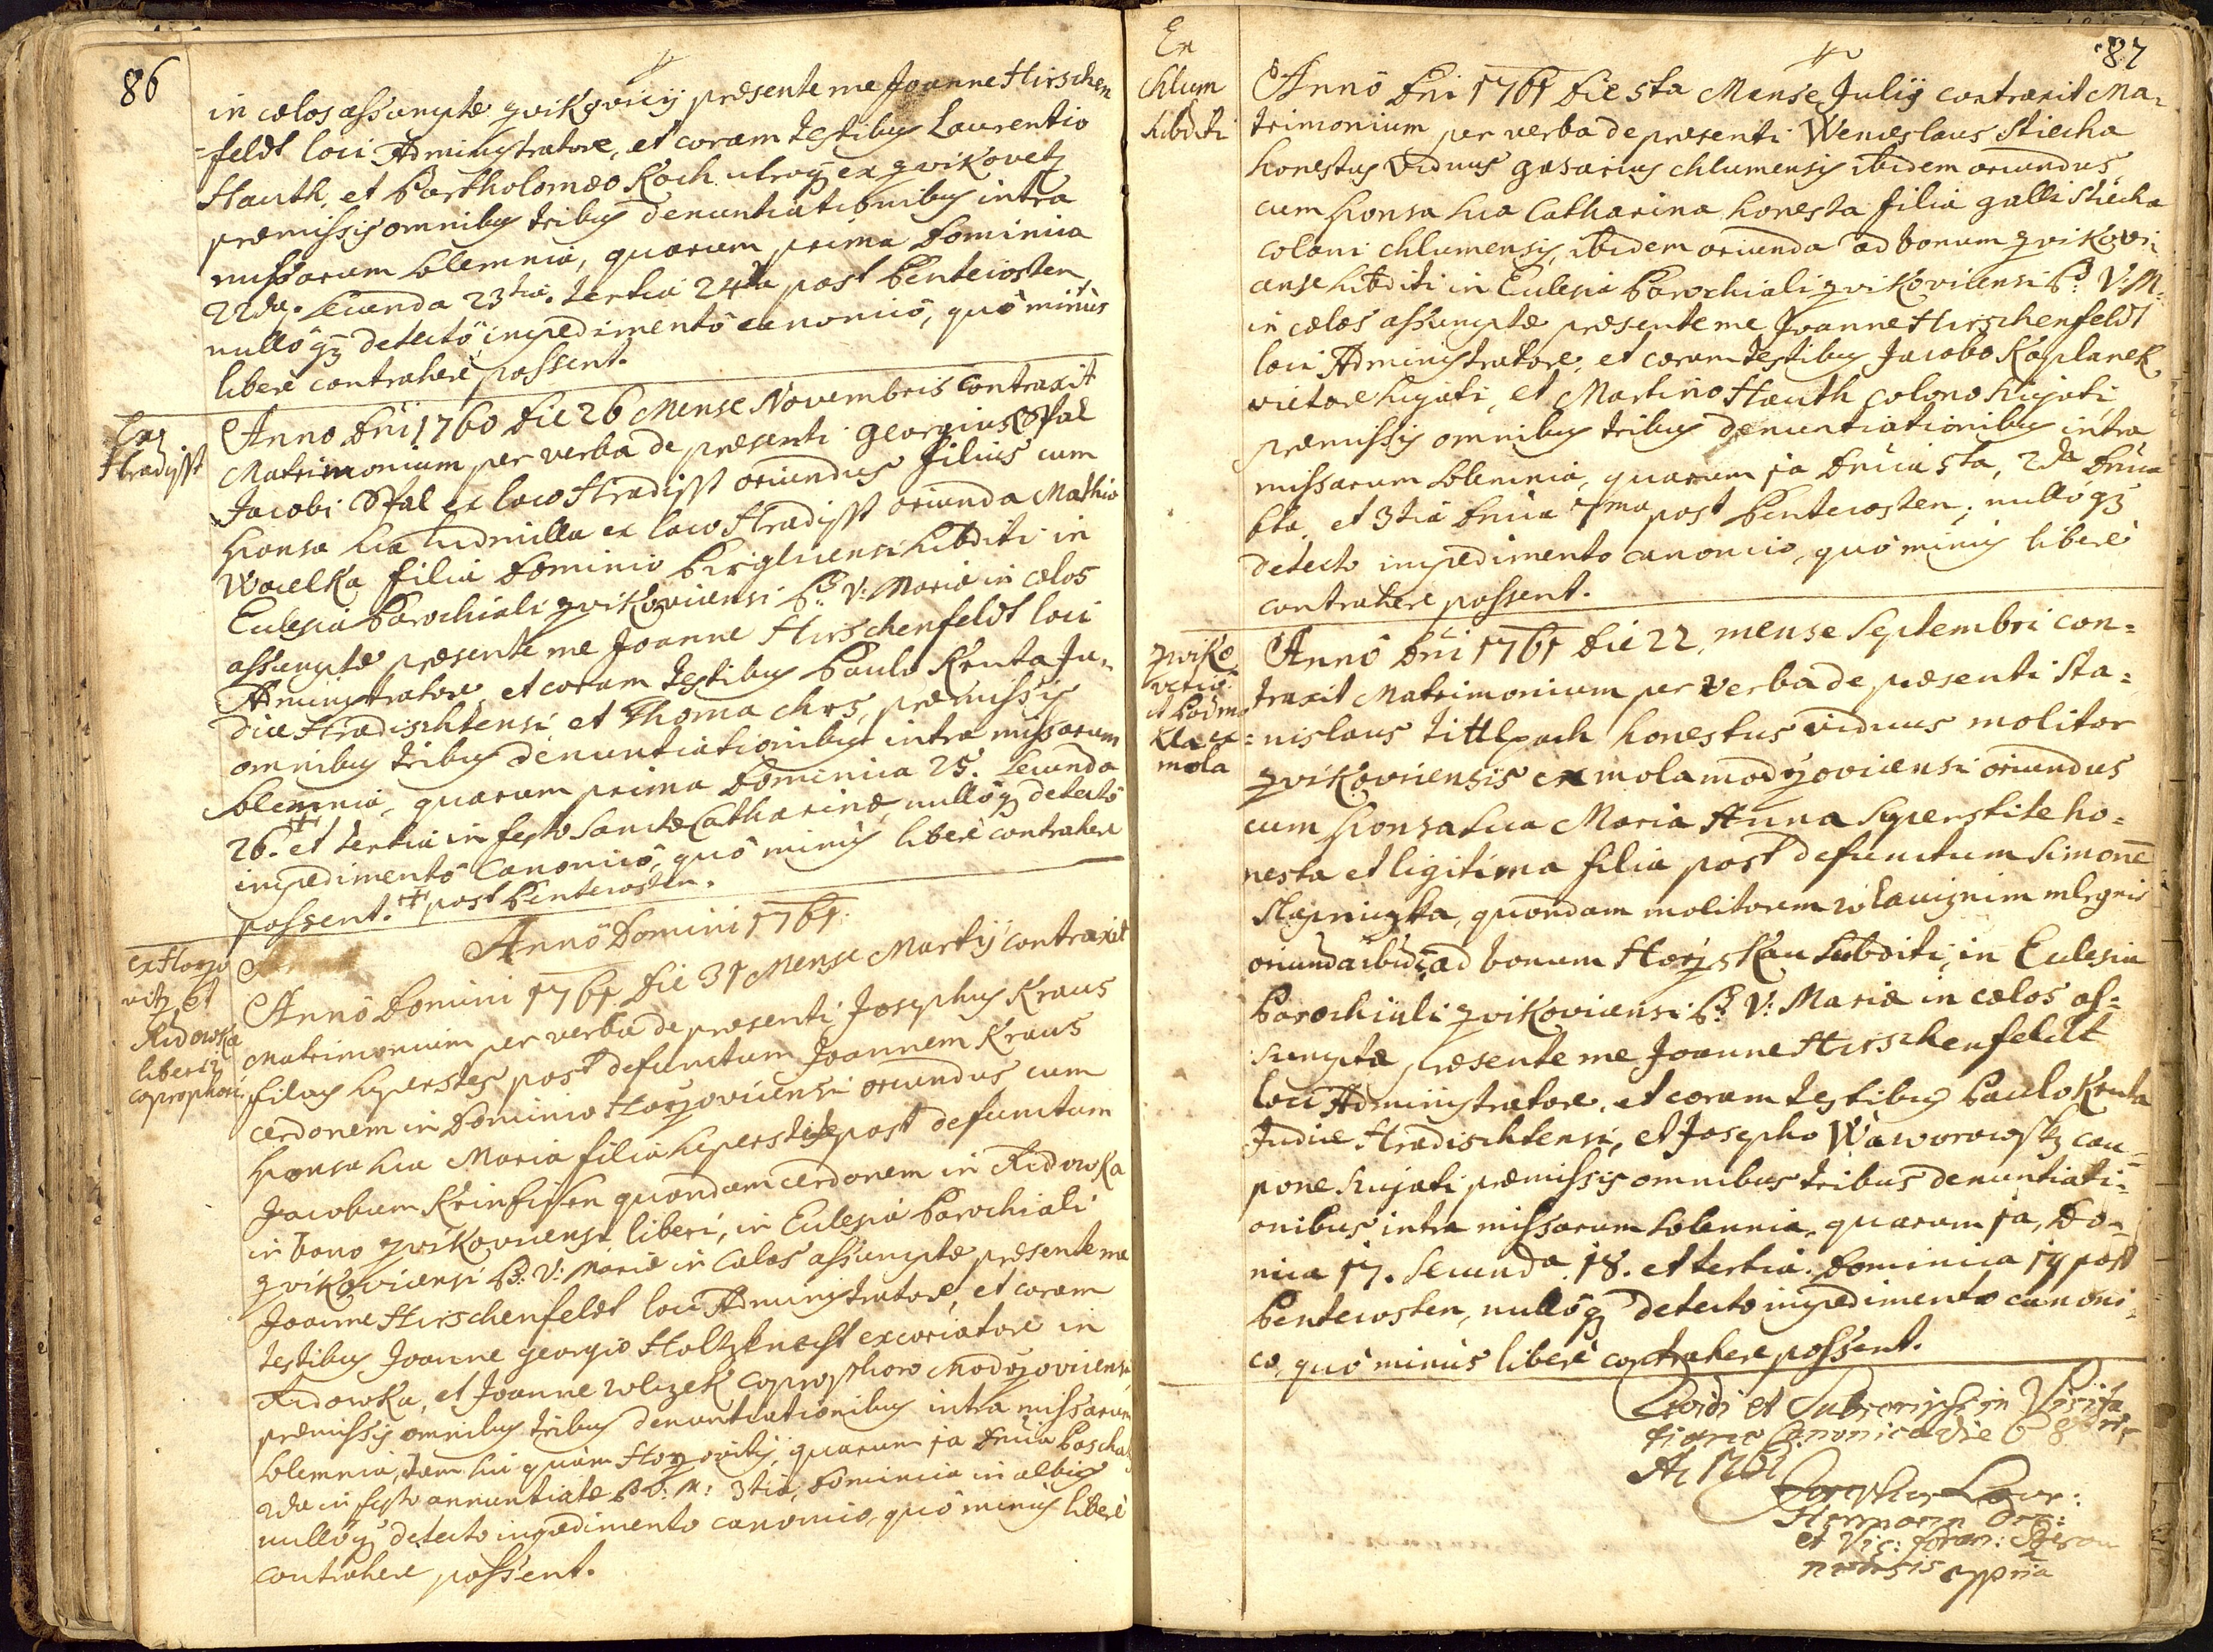 86
in cælos assumptæ zvikovicij præsente me Joanne Hirschen
=feldt loci Administratore, et coram testibus Laurentio
Hauth, et Bartholomæo Koch utroq; ex zvikovetz
præmissis omnibus tribus denuntiationibus intra
missarum solemnia, quarum prima Dominica
22da. secunda 23tia. tertia 24ta post Pentecosten
nullôq; detectô impedimentô canonicô, quô minùs
liberè contrahere possent.
Ex
Hradisst
Anno Dni 1760 Die 26 Mense Novembris contraxit
Matrimonium per verba de præsenti Georgius Opal
Jacobi Opal ex loco Hradisst oriundus filius cum
sponsa sua Ludmilla ex loco Hradisst oriunda Mathiæ
Wocelka filia Dominio Pirglicensi subditi in
Ecclesia Parochiali zvikovicensi B: V: Mariæ in cælos
assumptæ præsente me Joanne Hirschenfeldt loci
Administratore et coram testibus Paulo Kruta Ju=
dice Hradischtensi, et Thoma Chrs, præmissis
omnibus tribus denuntiationibus intra missarum
solemnia, quarum prima Dominica 25. secunda
26. + et tertia in festo Sanctæ Catharinæ, nullôq; detectô
impedimentô Canonicô, quô minùs liberè contrahere
possent. + post Pentecosten.
Annô Domini 1761.
ex Horzo
vitz et
Ridowka
liberi
coprophori
Annô Domini 1761 Die 31 Mense Martij contraxit
Matrimonium per verba de præsenti Josephus Kraus
filius superstes post defunctum Joannem Kraus
cerdonem in Dominio Horzovicensi oriundus cum
sponsa sua Maria filia superstite post defunctum
Jacobum quondam cerdonem in Ridowka
in bono zvikovicensi liberi, in Ecclesia Parochiali
zvikovicensi B: V: Mariæ in Cælos assumptæ præsente me
Joanne Hirschenfeldt loci Administratore, et coram
testibus Joanne Georgio Holtzknecht excoriatore in
Ridowka, et Joanne Wlczek coprophoro Modrzovicensi,
præmissis omnibus tribus denuntiationibus intra missarum
solemnia, tam hic quàm Horzovitij, quarum 1a Dnica Pascha
2da in festo annuntiatæ B: V: M: 3tia, Dominica in albis
nullôq; detecto impedimento canonico, quô minùs liberè
contrahere possent.
87
Ex
Chlum
subditi
Annô Dni 1761 Die 5ta Mense Julij contraxit Ma=
trimonium per verba de præsenti Wenceslaus Stiecha
honestus viduus gasarius chlumensis ibidem oriundus
cum sponsa sua Catharina honesta filia Galli Stiecha
coloni chlumensis, ibidem oriunda ad bonum zvikovi=
ense subditi in Ecclesia Parochiali zvikovicensi B: V: M:
in cælos assumptæ præsente me Joanne Hirschenfeldt
loci Administratore, et coram testibus Jacobo Kaplanek
vietore hujati, et Martino Hauth colono hujati
præmissis omnibus tribus denuntiationibus intra
missarum solemnia, quarum 1a Dnica 5ta, 2da Dnica
6ta, et 3tia Dnica 7ma post Pentecosten; nullôq;
detecto impedimento canonico, quô minùs liberè
contrahere possent.
zviko
et
ex
mola
Annô Dni 1761 Die 22, mense Septembri con=
traxit Matrimonium per verba de præsenti Sta=
=nislaus Tittlpach honestus viduus molitor
zvikovicensis ex mola modrzovicensi oriundus
cum sponsa sua Maria Anna superstite ho=
nesta et ligitima filia post defunctum Simonē
Slapniczka, quondam molitorem
oriunda ibid: ad bonum subditi, in Ecclesia
Parochiali zvikovicensi B: V: Mariæ in cælos as=
sumptæ, præsente me Joanne Hirschenfeldt
loci Administratore, et coram testibus Paulo Kruta
Judice Hradischtensi, et Josepho Waworowsky cau=
pone hujati præmissis omnibus tribus denuntiati=
onibus intra missarum solennia, quarum 1a, Do=
nica 17. secunda 18. et tertia Dominica 19 post
Pentecosten, nullôq; detecto impedimento canoni=
co, quô minùs liberè contrahere possent.
et Subscripsi in Visita
tione Canonica die 6 8bris
Josephus Laur:
Hermann
et Vic: foran: